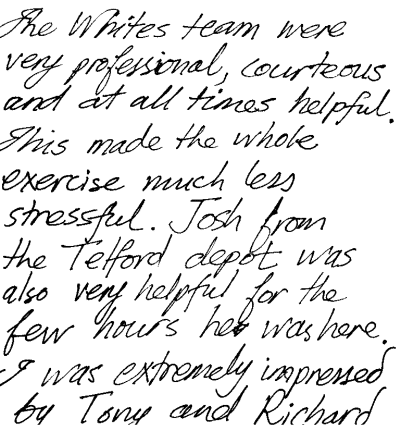 The Whites team were
very professional, courteous
and at all times helpful.
This made the whole
exercise much less
stressful. Josh from
the Telford depot was
also very helpful for the
few hours he was here.
I was extremely impressed
by Tony and Richard